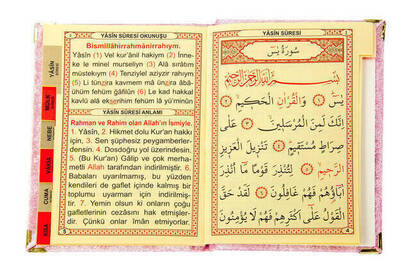 YÂSİN SÛRESİ OKUNUŞU
Bismillâhirrahmânirrahıym.
Yâsîn (1) Vel kur'ânil hakiym (2) İnne-
ke le minel murseliyn (3) Alâ sırâtım
müstekıym (4) Tenziylel aziyzir rahıym
(5) Li tünzira kavmem mâ ünzira âbâ-
ühüm fehüm ğâfilûn (6) Le kad hakkal
kavlü alâ ekserihim fehüm lâ yü'minûn
YÂSİN SÛRESİ ANLAMI
Rahman ve Rahim olan Allah'ın ismiyle.
1. Yâsin, 2. Hikmet dolu Kur'an hakkı
için, 3. Sen şüphesiz peygamberler-
densin. 4. Dosdoğru yol üzerindesin.
5. (Bu Kur'an) Gâlip ve çok merha-
metli Allah tarafından indirilmiştir. 6.
Babaları uyarılmamış, bu yüzden
kendileri de gaflet içinde kalmış bir
toplumu uyarman için indirilmiş-
tir. 7. Yemin olsun ki onların çoğu
gafletlerinin cezasını hak etmişler-
dir. Çünkü onlar îman etmiyorlar.
3
YÂSİN
MÜLK
NEBE
VAKIA
CUMA
KISA
YÂSİN SÛRESİ
سُورَةُ يٰسٓ
بِسْمِ اللّٰهِ الرَّحْمٰنِ الرَّحِيمِ
يٰسٓ ١ وَالْقُرْاٰنِ الْحَكِيمِ ٢
اِنَّكَ لَمِنَ الْمُرْسَلِينَ ٣ عَلٰى
صِرَاطٍ مُسْتَقِيمٍ ٤ تَنْزِيلَ الْعَزِيزِ
الرَّحِيمِ ٥ لِتُنْذِرَ قَوْمًا مَٓا اُنْذِرَ
اٰبَٓاؤُ۬هُمْ فَهُمْ غَافِلُونَ ٦ لَقَدْ حَقَّ
الْقَوْلُ عَلٰٓى اَكْثَرِهِمْ فَهُمْ لَا يُؤْمِنُونَ
4